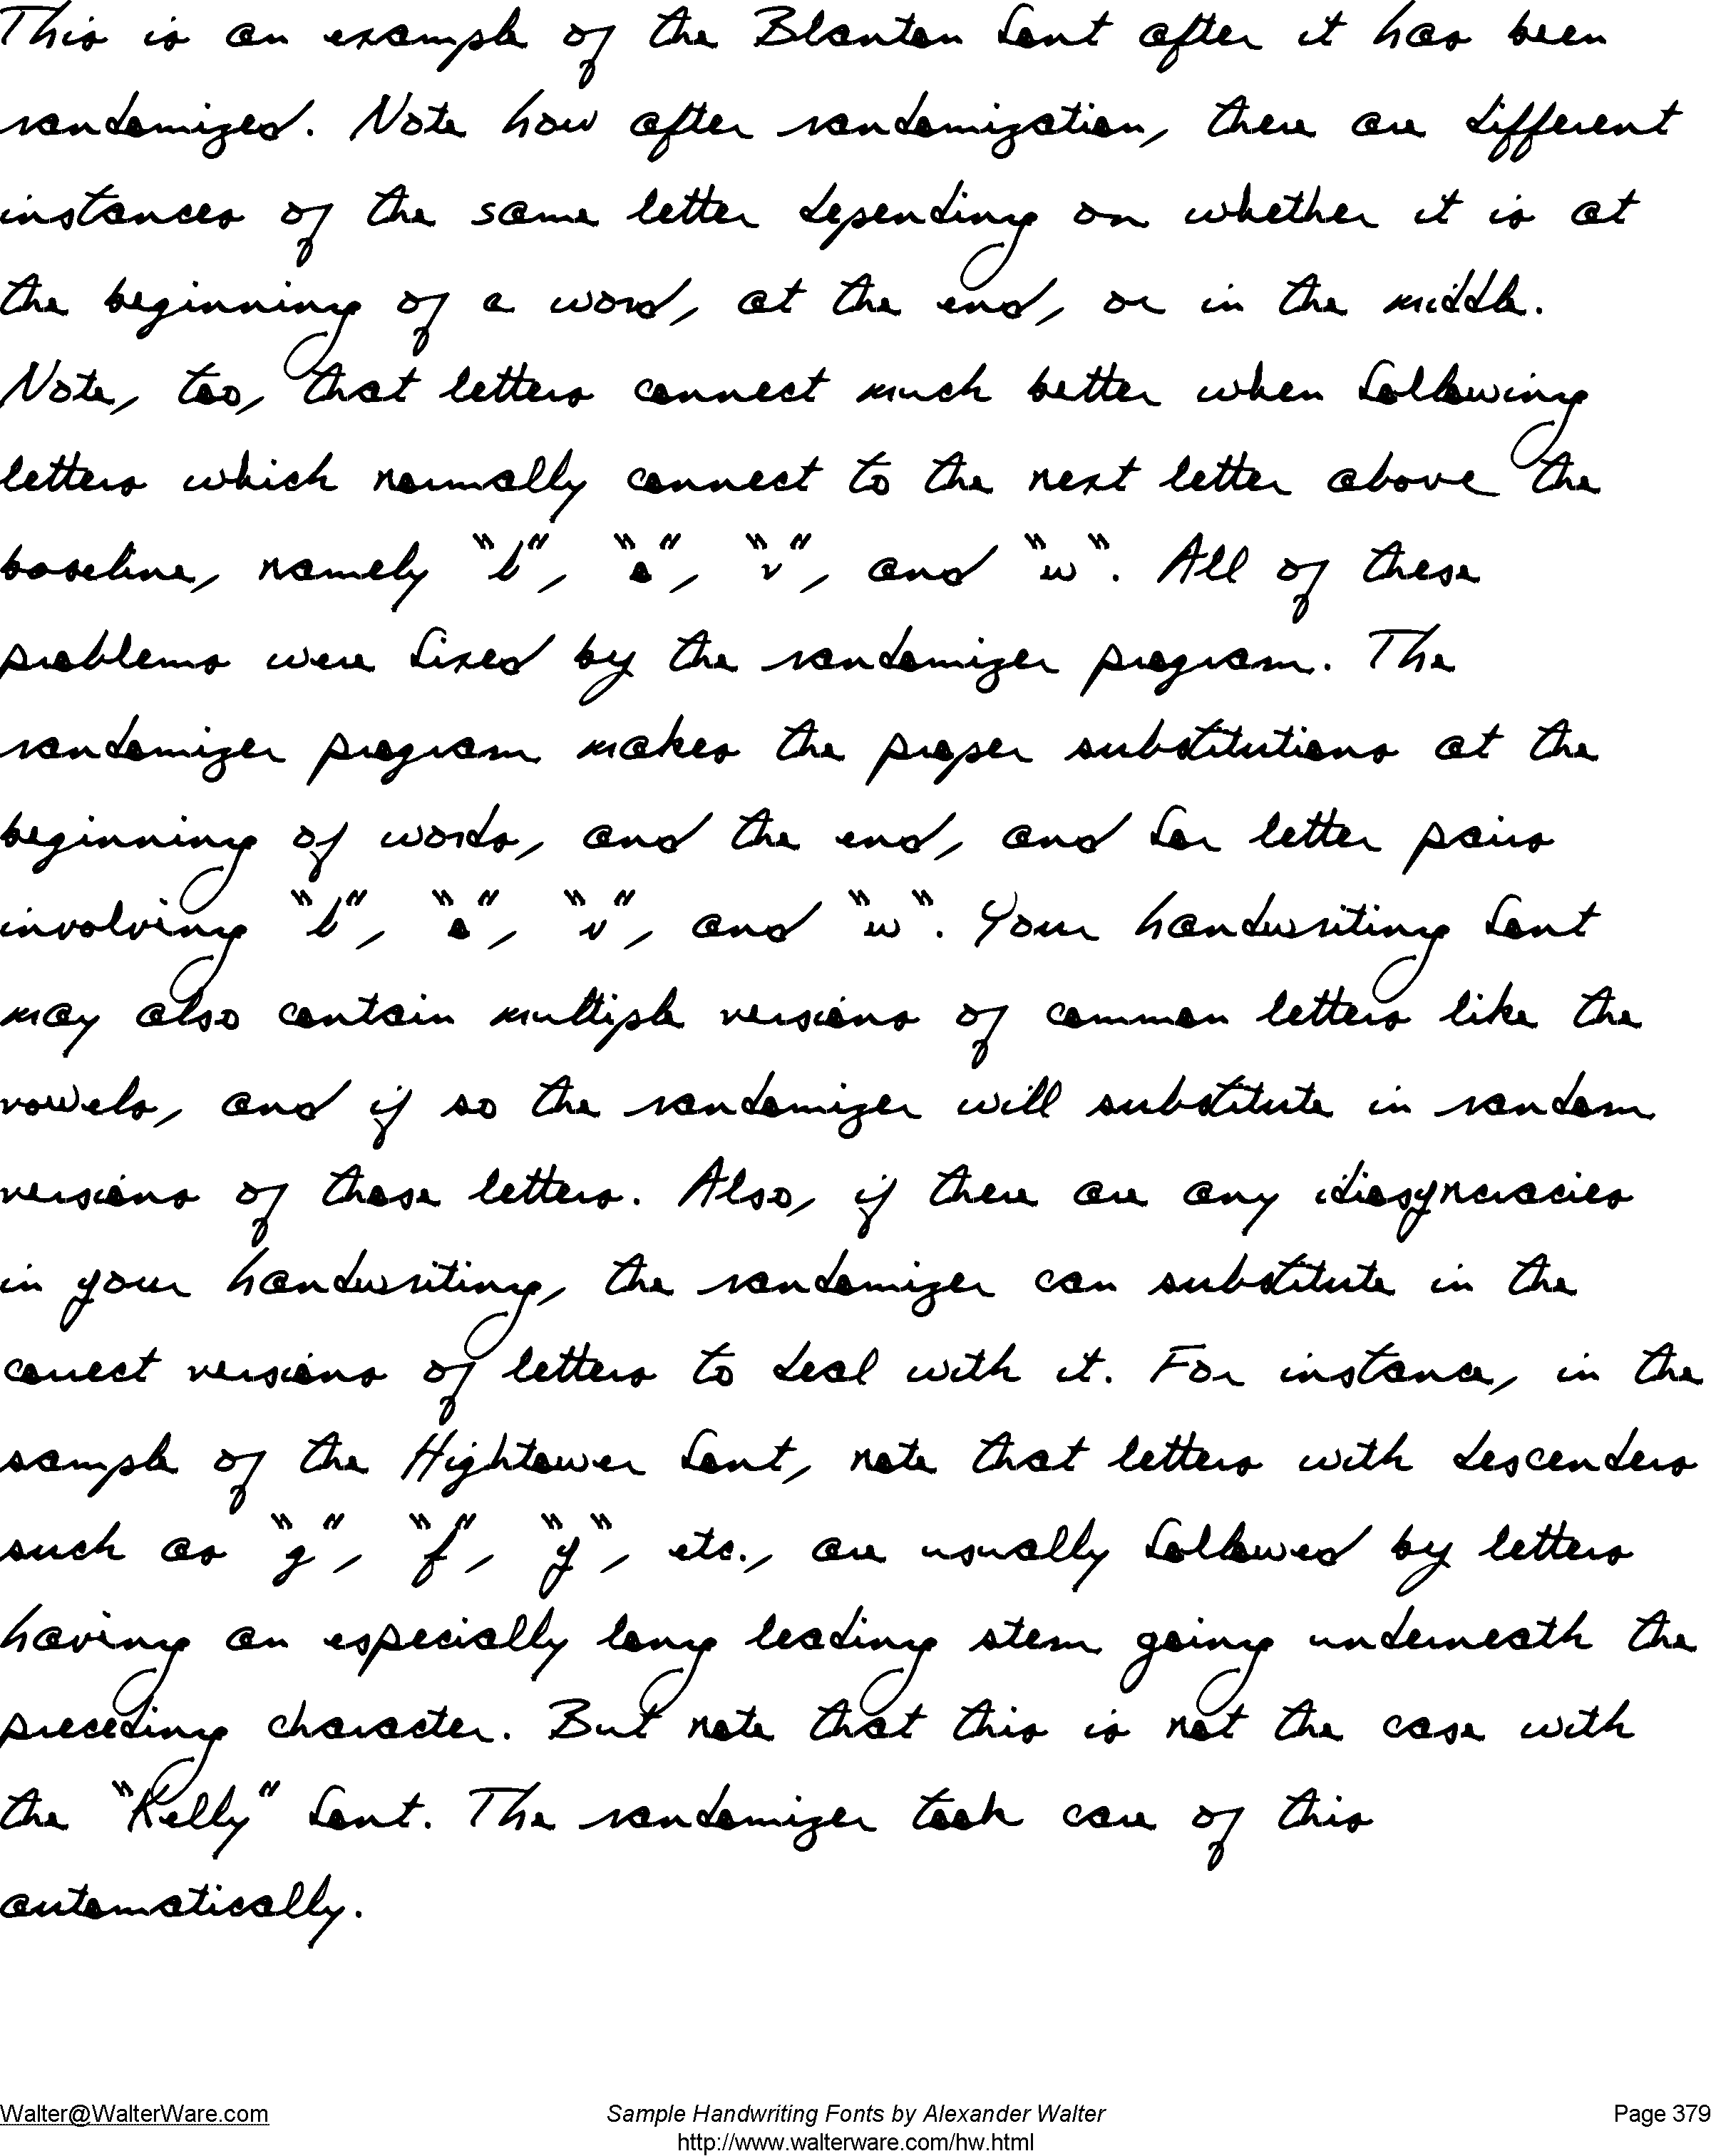 This is an example of the Blanton font after it has been
randomized. Note how after randomization, there are different
instances of the same letter depending on whether it is at
the beginning of a word, at the end, or in the middle.
Note, too, that letters connect much better when following
letters which normally connect to the next letter above the
baseline, namely "b", "o", "v", and "w". All of these
problems were fixed by the randomizer program. The
randomizer program makes the proper substitutions at the
beginning of words, and the end, and for letter pairs
involving "b", "o", "v", and "w". Your handwriting font
may also contain multiple versions of common letters like the
vowels, and if so the randomizer will substitute in random
versions of those letters. Also, if there are any idiosyncracies
in your handwriting, the randomizer can substitute in the
correct versions of letters to deal with it. For instance, in the
sample of the Hightower font, note that letters with descenders
such as "g", "f", "y", etc., are usually followed by letters
having an especially long leading stem going underneath the
preceding character. But note that this is not the case with
the "Kelly" font. The randomizer took care of this
automatically.
Walter@WalterWare.com Sample Handwriting Fonts by Alexander Walter Page 379
http://www.walterware.com/hw.html